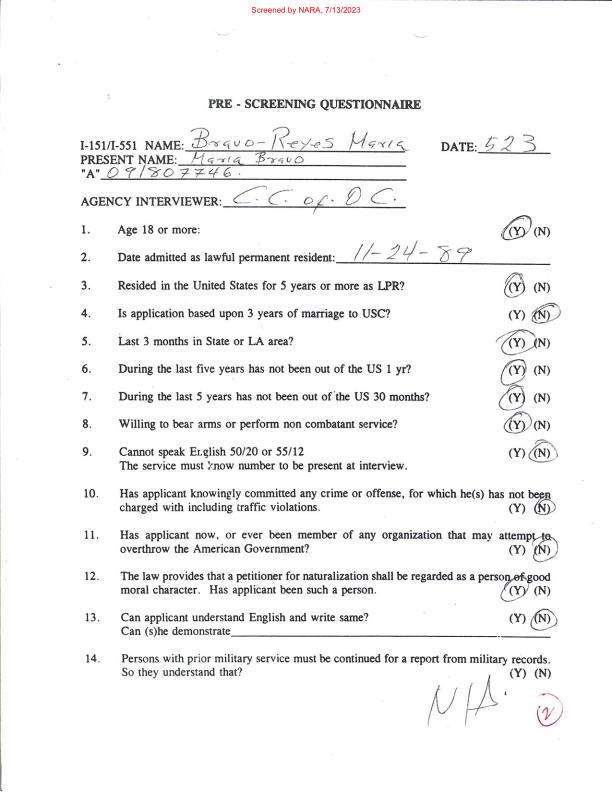 Screened by NARA, 7/13/2023
PRE - SCREENING QUESTIONNAIRE
I-151/I-551 NAME: Bravo-Reyes Maria DATE: 523
PRESENT NAME: Maria Bravo
"A" 091807746.
AGENCY INTERVIEWER: C. C. of. D C.
1. Age 18 or more: (Y) (N)
2. Date admitted as lawful permanent resident: 11-24-89
3. Resided in the United States for 5 years or more as LPR? (Y) (N)
4. Is application based upon 3 years of marriage to USC? (Y) (N)
5. Last 3 months in State or LA area? (Y) (N)
6. During the last five years has not been out of the US 1 yr? (Y) (N)
7. During the last 5 years has not been out of the US 30 months? (Y) (N)
8. Willing to bear arms or perform non combatant service? (Y) (N)
9. Cannot speak English 50/20 or 55/12 (Y) (N)
The service must know number to be present at interview.
10. Has applicant knowingly committed any crime or offense, for which he(s) has not been
charged with including traffic violations. (Y) (N)
11. Has applicant now, or ever been member of any organization that may attempt to
overthrow the American Government? (Y) (N)
12. The law provides that a petitioner for naturalization shall be regarded as a person of good
moral character. Has applicant been such a person. (Y) (N)
13. Can applicant understand English and write same? (Y) (N)
Can (s)he demonstrate
14. Persons with prior military service must be continued for a report from military records.
So they understand that? (Y) (N)
N/A.
2